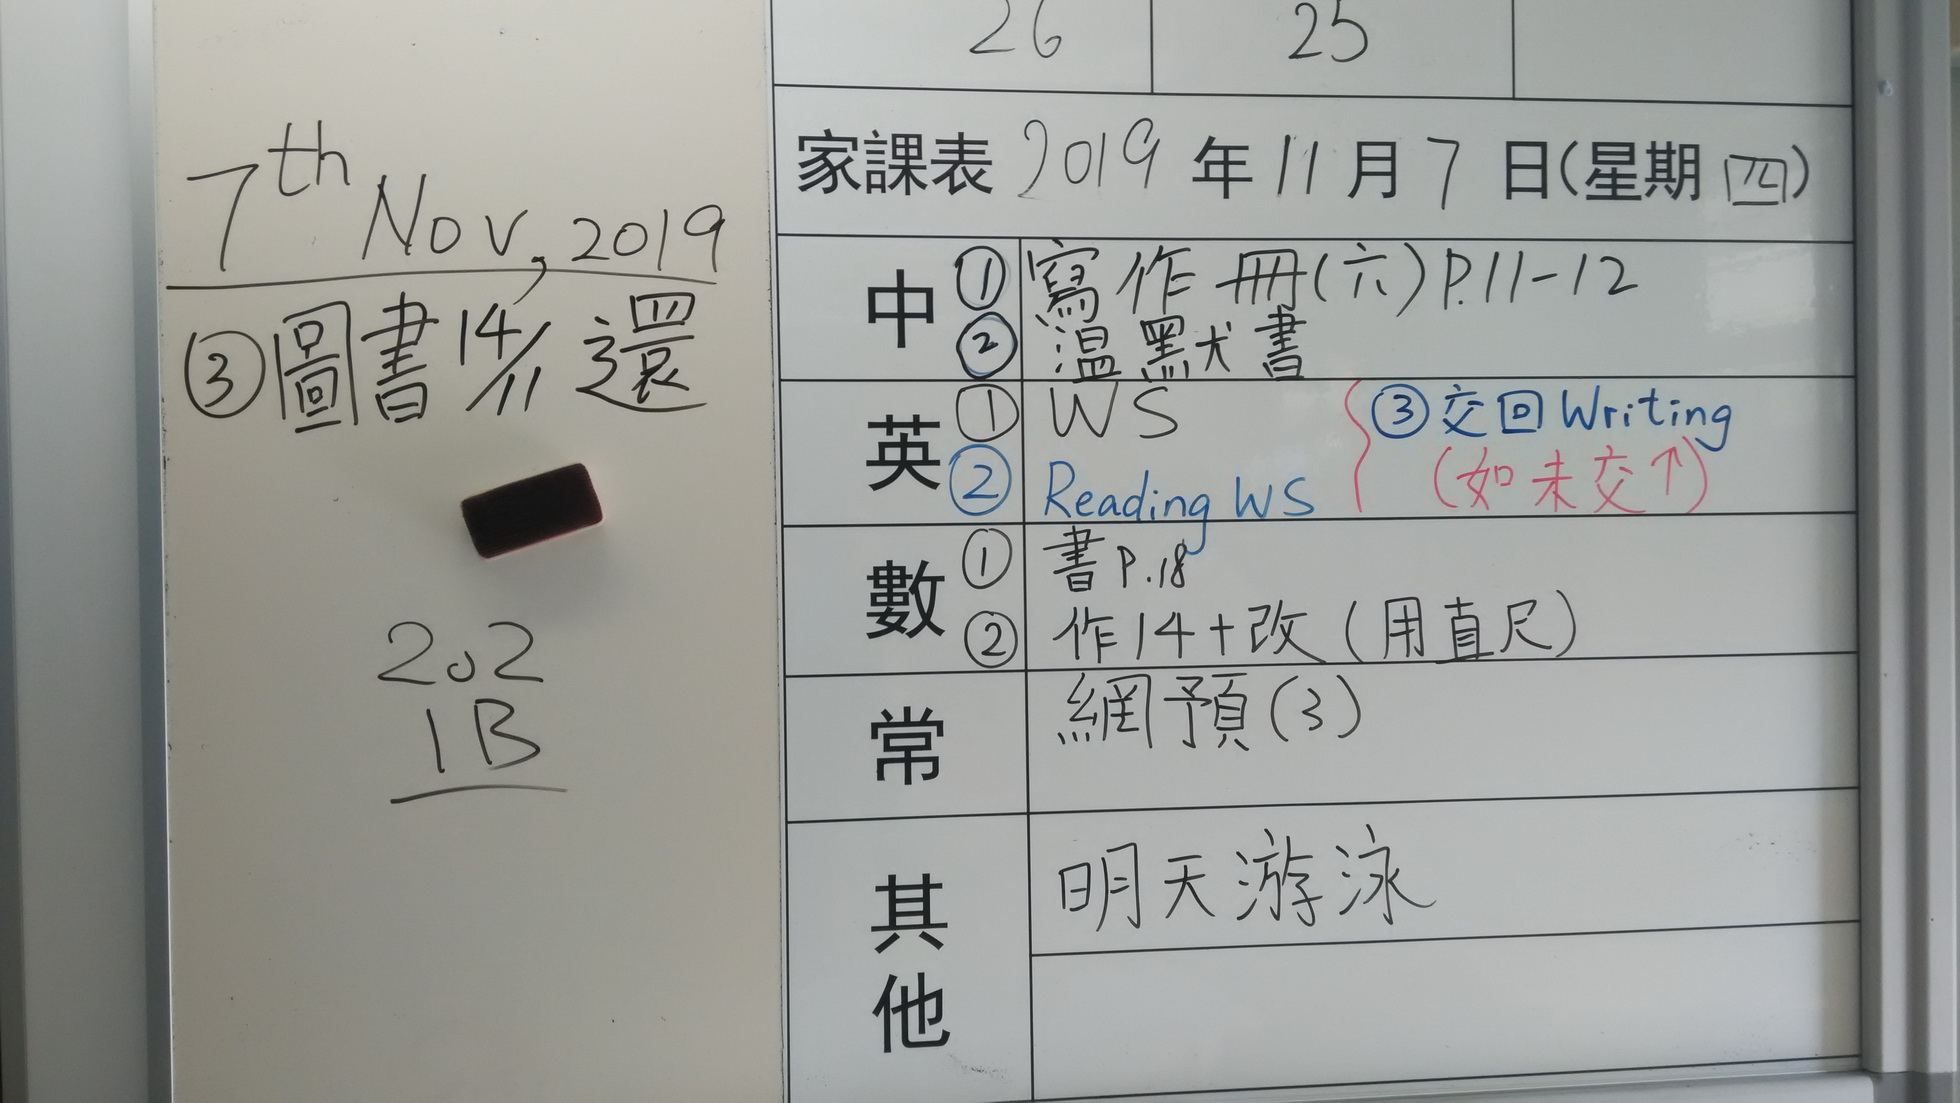 7th Nov, 2019
③圖書14/11還
202
1B
26 25
家課表 2019年11月7日(星期四)
中 ① 寫作冊(六)P.11-12
② 溫默書
英 ① WS ③交回Writing
② Reading WS (如未交↑)
數 ① 書P.18
② 作14+改(用直尺)
常 網預(3)
其他 明天游泳